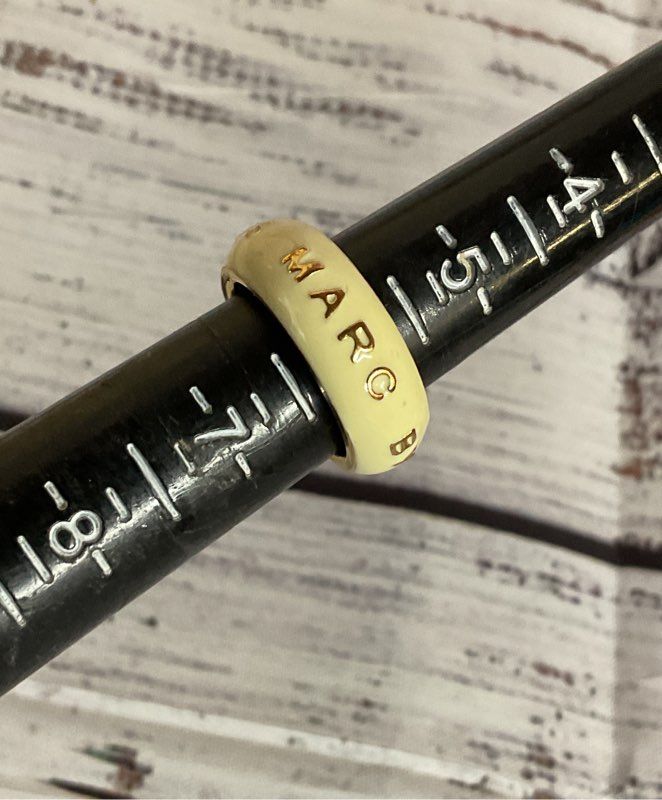 MARC B
4
5
7
8